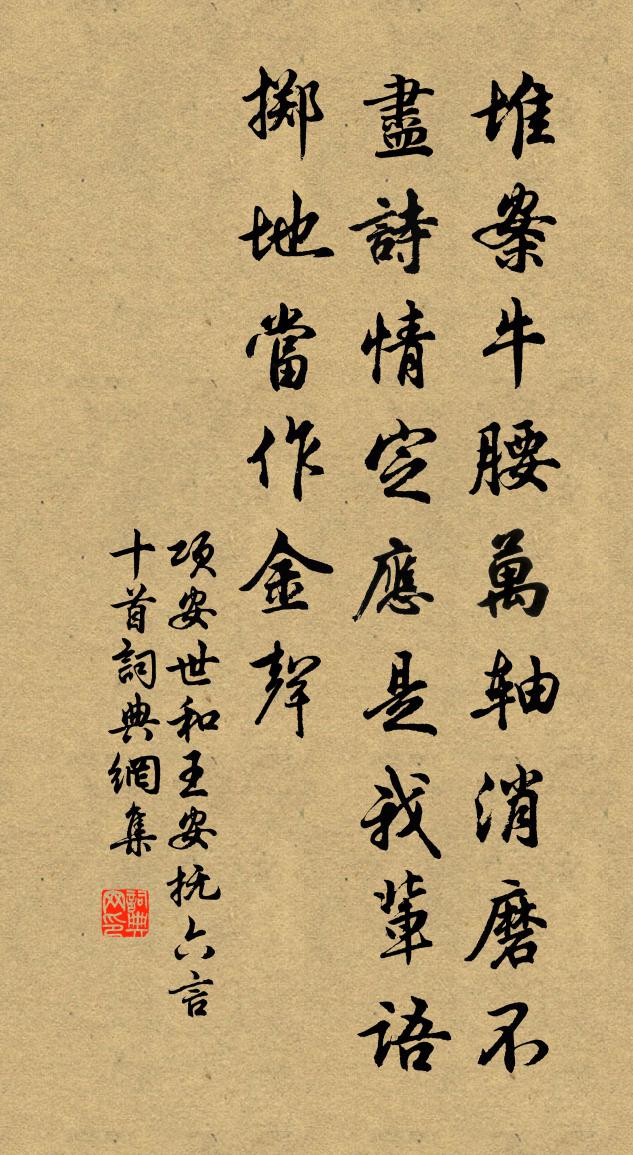 堆案牛腰萬軸消磨不
盡詩情定應是我輩語
擲地當作金聲
项安世和王安抚六言
十首詞典網集
詞典网印